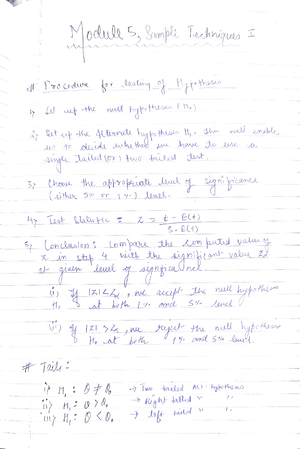 Module 5, Sample Techniques I
# Procedure for testing of Hypothesis
1) Set up the null hypothesis (H₀)
2) Set up the Alternate hypothesis H₁. This will enable
us to decide whether we have to use a
single tailed (or) two tailed test.
3) Choose the appropriate level of significance
(either 5% or 1%) level.
4) Test Statistic : Z = t - E(t) / S.E(t)
5) Conclusion: Compare the computed value of
z in step 4 with the significant value Zα
at given level of significance.
i) If |Z| < Zα, we accept the null hypothesis
H₀ at both 1% and 5% level
ii) If |Z| > Zα, we reject the null hypothesis
H₀ at both 1% and 5% level.
# Tails:
i) H₁ : θ ≠ θ₀ → Two tailed Alt hypothesis
ii) H₁ : θ > θ₀ → Right tailed " "
iii) H₁ : θ < θ₀ → left tailed " "